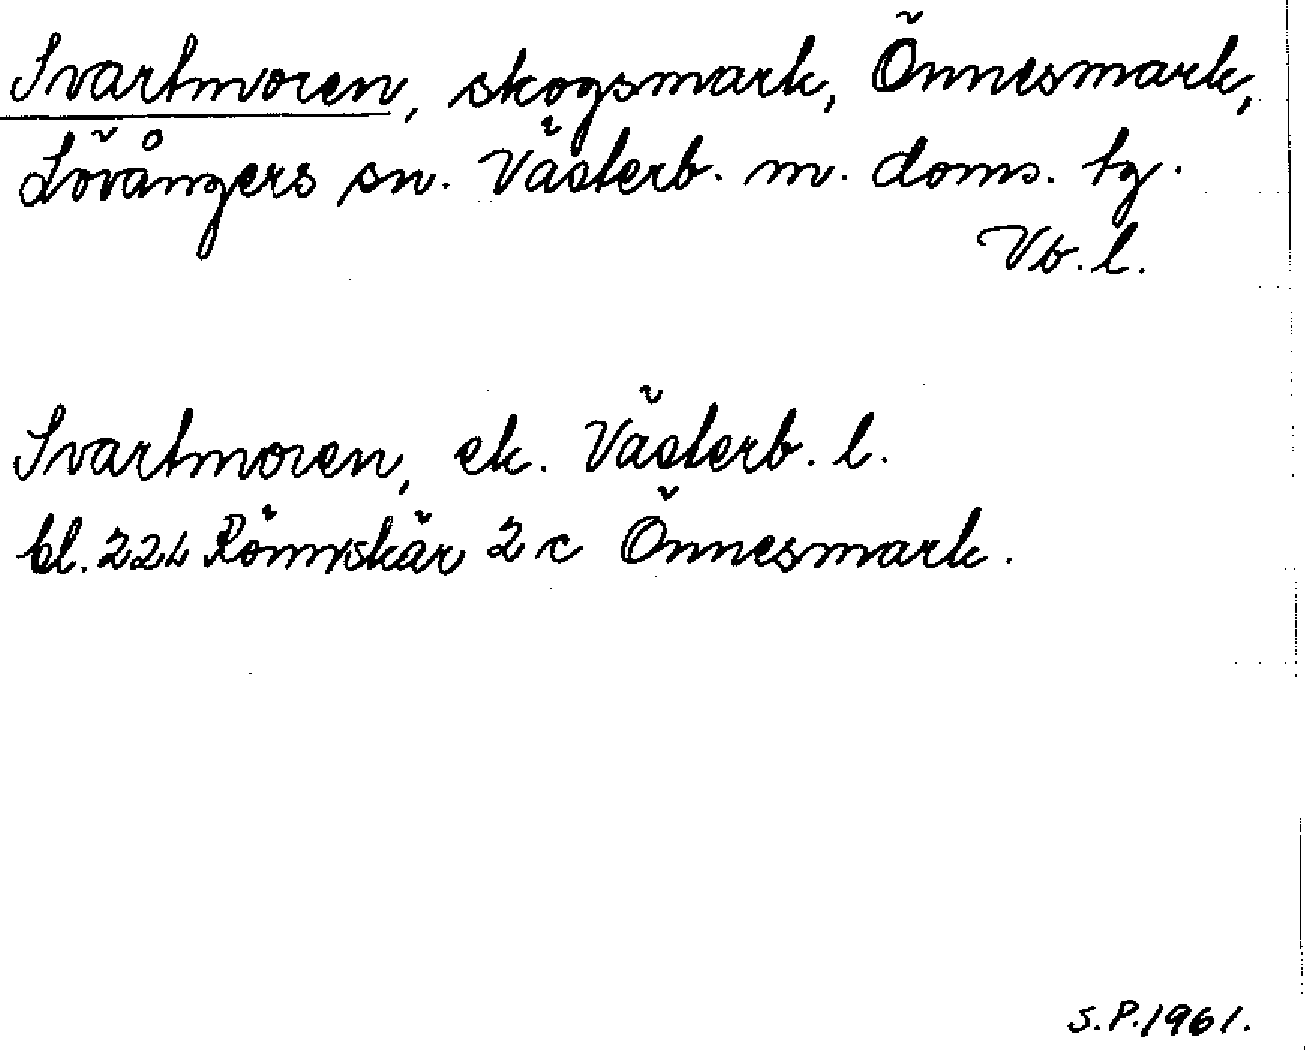 Svartmoren, skogsmark, Önnesmark,
Lövångers sn. Västerb. m. doms. tg.
Vb. l.
Svartmoren, ek. Västerb. l.
bl. 224 Rönnskär 2 c Önnesmark.
S.P. 1961.